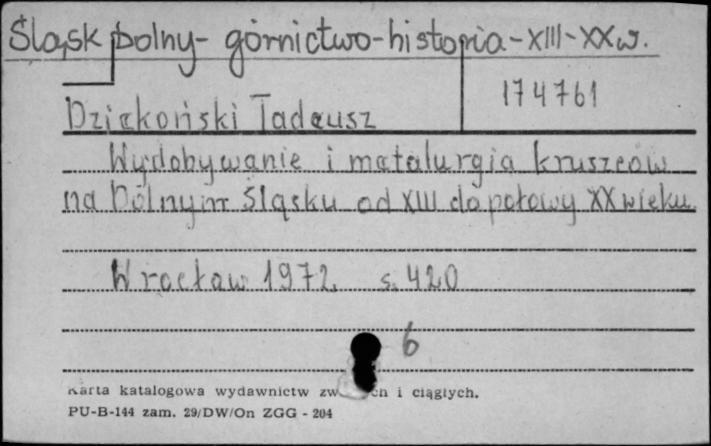 Śląsk dolny - górnictwo - historia - XIII - XX w.
174761
Dziekoński Tadeusz
Wydobywanie i metalurgia kruszców
na Dolnym Śląsku od XIII do połowy XX wieku
Wrocław 1972 s. 420
6
Karta katalogowa wydawnictw i ciągłych.
PU-B-144 zam. 29/DW/On ZGG - 204